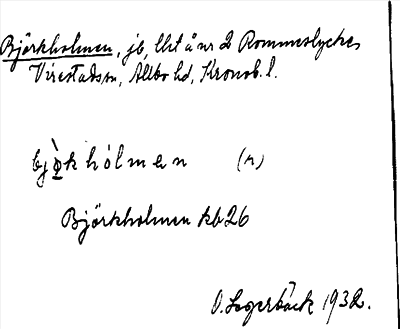 Björkholmen, jb, lht å nr 2 Rommeslycke,
Virestads sn, Allbo hd, Kronob. l.
bjö̀khólmen (n)
Björkholmen kb 26
O. Lagerbäck 1932.